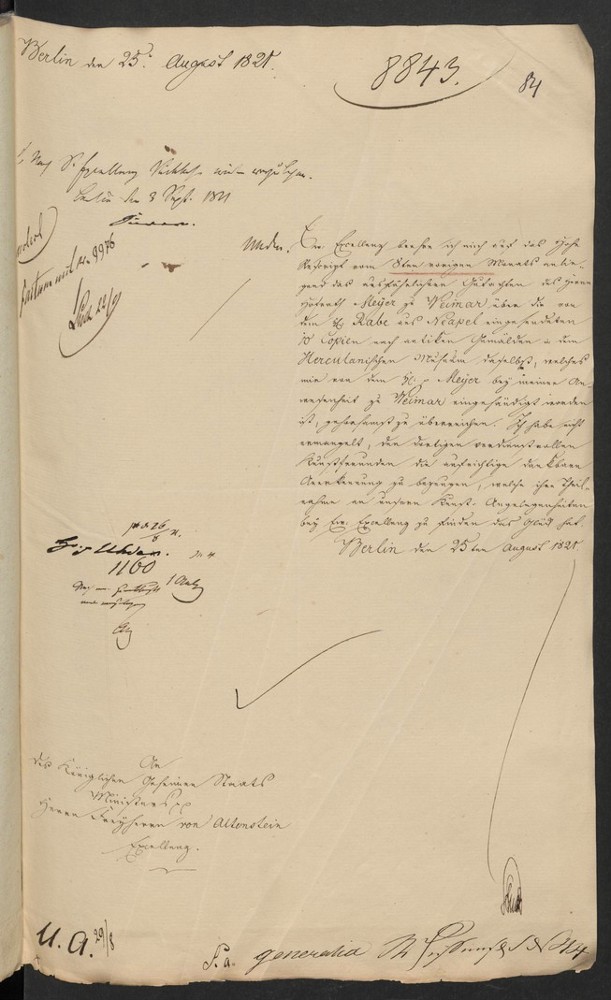 Berlin den 25t August 1821.
8843.
84
Sr Excellenz
Berlin den 3 Sept. 1821
9976
Ew. Excellenz beehre ich mich auf das hohe
Rescript vom 8ten vorigen Monats anlie-
gend das ausführlichere Gutachten des Herrn
Hofrath Meÿer zu Weimar über die von
dem Hl. Rabe aus Neapel eingesendeten
10 Copien nach antiken Gemälden in dem
Herculanischen Museum daselbst, welches
mir von dem Hl. p Meÿer beÿ meiner An-
wesenheit zu Weimar eingehändigt worden
ist, gehorsamst zu überreichen. Ich habe nicht
ermangelt, den dortigen verdienstvollen
Kunstfreunden die aufrichtige dankbare
Anerkennung zu bezeugen, welche ihre Theil-
nahme an unsern Kunst-Angelegenheiten
beÿ Ew. Excellenz zu finden das Glück hat.
Berlin den 25ten August 1821.
26/8
H. Uhden.
1160
1 Anl
An
des Königlichen Geheimen Staats
Ministers pp
Herrn Freÿherrn von Altenstein
Excellenz.
U. A. 29/8
P. a. generalia